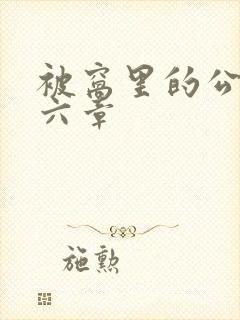 被窝里的公
六章
施勲